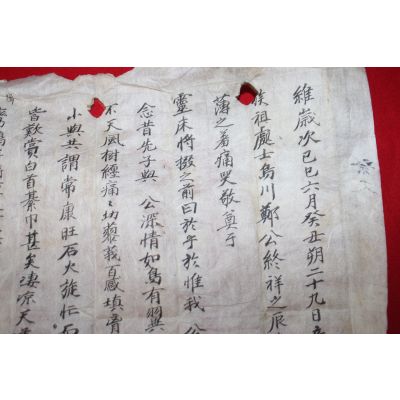 維歲次己巳六月癸丑朔二十九日
祖處士烏川鄭公終祥之辰
薄之著痛哭敬奠于
靈床將掇之前曰於乎於惟我 公
念昔先子與 公深情如鳥有翼
不天風樹經痛〻幼藐我百感填膺
小與共謂常康旺石火旋忙
皆歎賞白首綦巾甚矣凄凉天